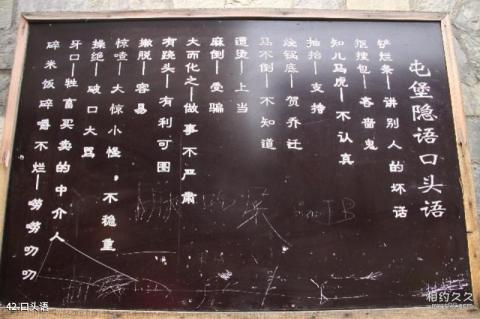 屯堡隐语口头语
铲烂条—讲别人的坏话
抠搜包—吝啬鬼
知儿马虎—不认真
抽抬—支持
烧锅底—贺乔迁
马不倒—不知道
遭烫—上当
麻倒—受骗
大而化之—做事不严肃
有跷头—有利可图
撇脱—容易
惊喳—大惊小怪，不稳重
操绝—破口大骂
牙口—牲畜买卖的中介人
碎米饭碎嚼不烂—唠唠叨叨
42-口头语
相约久久